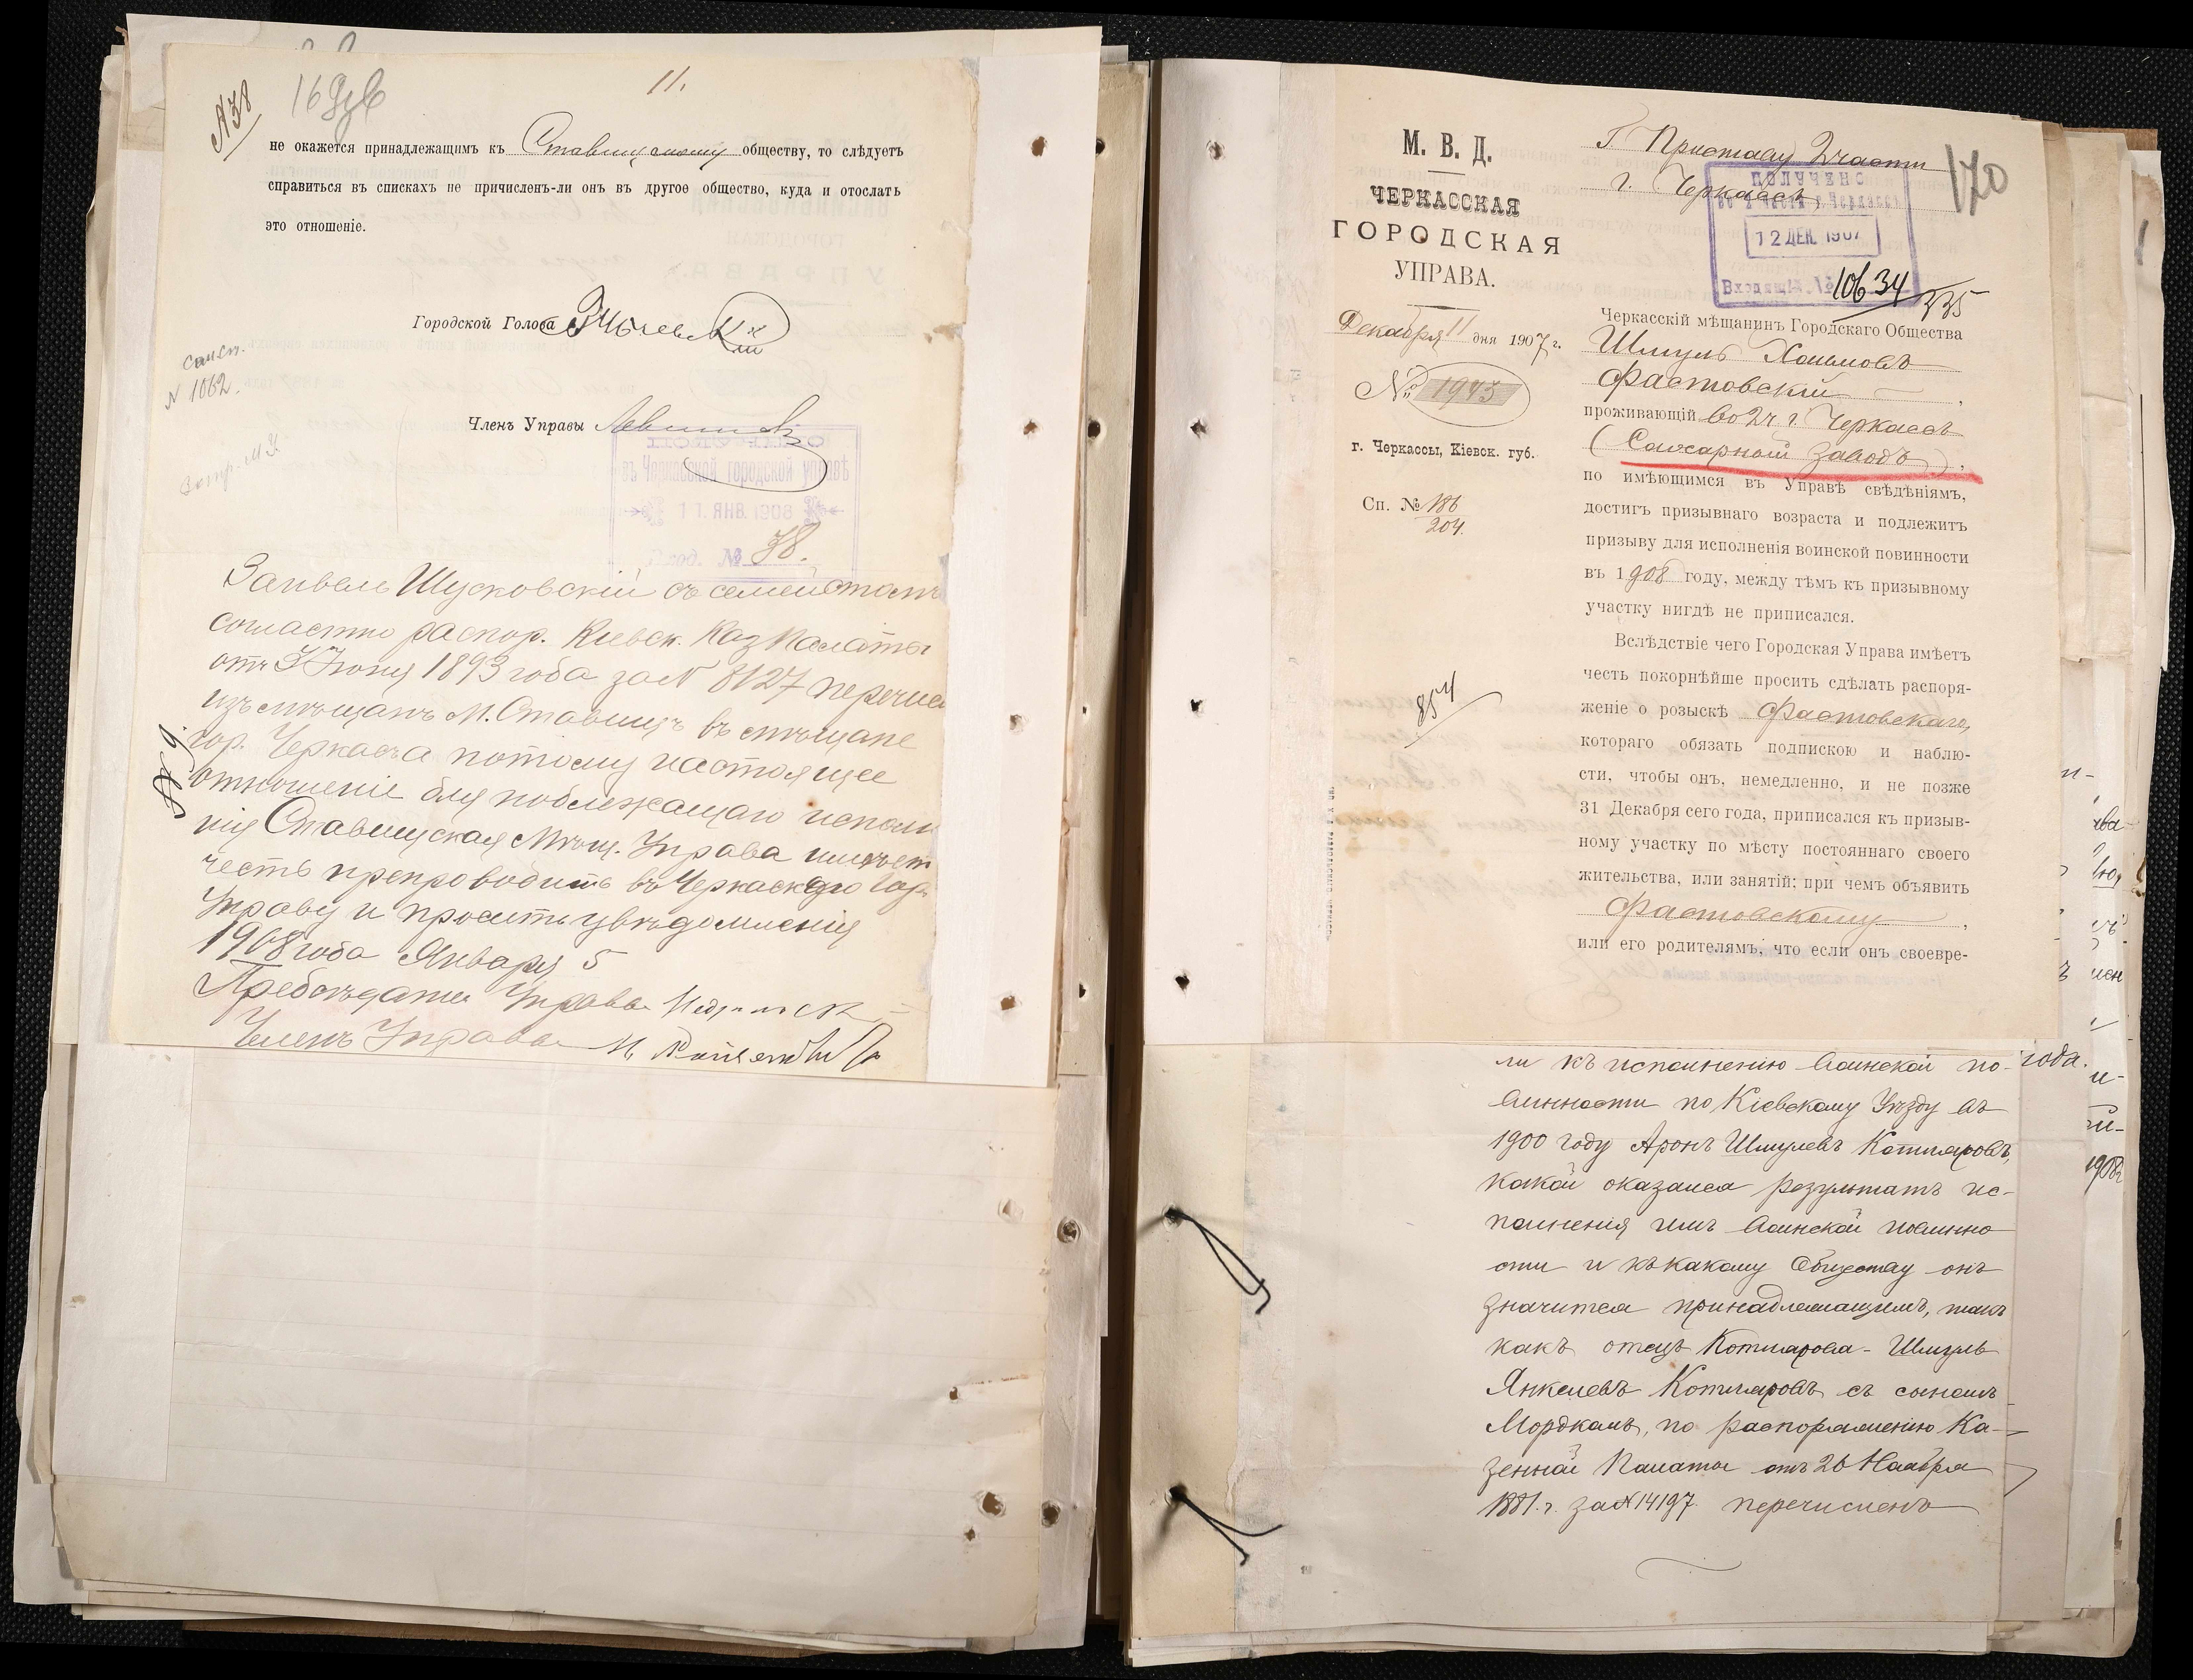 А38
11.
не окажется принадлежащимъ къ Ставищскому обществу, то слѣдуетъ
справиться въ спискахъ не причисленъ-ли онъ въ другое общество, куда и отослать
это отношеніе.
Городской Голова
N 1062.
Членъ Управы
въ Черкасской городской управѣ
11. ЯНВ. 1908
Вход. № 38.
Запвель Шусковскій съ семействомъ
согласно распор. Кіевск. Каз Палаты
отъ 3 Іюня 1893 года за N 8127 перечис
изъ мѣщанъ м. Ставищъ въ мѣщане
гор. Черкасъ а потому настоящее
отношеніе для подлежащаго исполн
нія Ставищская Мѣщ. Управа имѣетъ
честь препроводить въ Черкасскую Гор.
Управу и просить увѣдомленія
1908 года Января 5
Предсѣдатель Управы
Членъ Управы
М. В. Д.
ЧЕРКАССКАЯ
ГОРОДСКАЯ
УПРАВА.
Декабря 11 дня 1907 г.
№ 1943
г. Черкассы, Кіевск. губ.
Сп. № 186
204.
854
Г. Приставу 2 части
г. Черкассъ
170
ПОЛУЧЕНО
12 ДЕК. 1907
Входящій № 10634
335
Черкасскій мѣщанинъ Городскаго Общества
Шмуль Хаимовъ
Фастовскій,
проживающій во 2 ч. г. Черкассъ
(Сахарный заводъ),
по имѣющимся въ Управѣ свѣдѣніямъ,
достигъ призывнаго возраста и подлежитъ
призыву для исполненія воинской повинности
въ 1908 году, между тѣмъ къ призывному
участку нигдѣ не приписался.
Вслѣдствіе чего Городская Управа имѣетъ
честь покорнѣйше просить сдѣлать распоря-
женіе о розыскѣ Фастовскаго,
котораго обязать подпискою и наблю-
сти, чтобы онъ, немедленно, и не позже
31 Декабря сего года, приписался къ призыв-
ному участку по мѣсту постояннаго своего
жительства, или занятій; при чемъ объявить
Фастовскому,
или его родителямъ, что если онъ своевре-
ли къ исполненію воинской по-
винности по Кіевскому Уѣзду въ
1900 году Аронъ Шмулевъ Котляровъ,
какой оказался результатъ ис-
полненія имъ воинской повинно
сти и къ какому Обществу онъ
значится принадлежащимъ, такъ
какъ отецъ Котлярова - Шмуль
Янкелевъ Котляровъ съ сыномъ
Мордкомъ, по распоряженію Ка-
зенной Палаты отъ 26 Ноября
1881 г. за N 14197 перечисленъ
года.